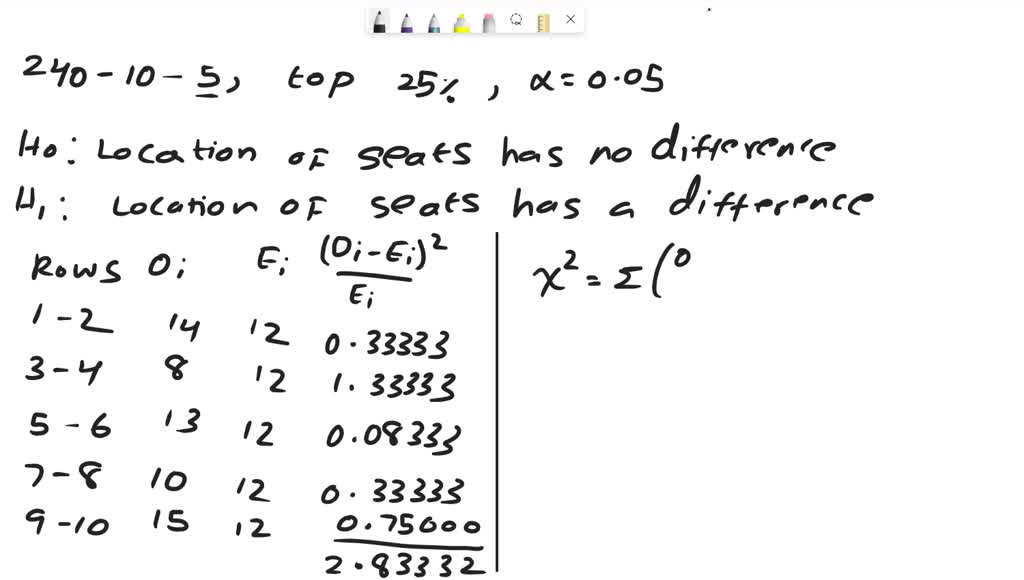 240-10-5, top 25%, α=0.05
H₀: Location of seats has no difference
H₁: Location of seats has a difference
Rows Oᵢ Eᵢ (Oᵢ-Eᵢ)²/Eᵢ
1-2 14 12 0.33333
3-4 8 12 1.33333
5-6 13 12 0.08333
7-8 10 12 0.33333
9-10 15 12 0.75000
2.83332
χ² = Σ(O